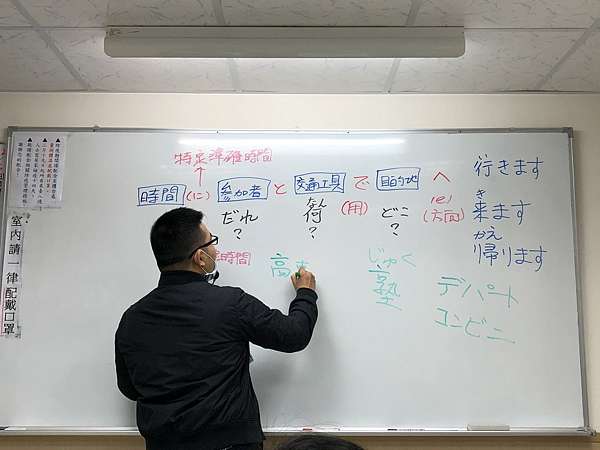 特定準確時間
時間 (に) 参加者 と 交通工具 で 目的地 へ
(用) (e) (方面)
だれ 何 どこ
? ? ?
時間
高
じゅく
塾
デパート
コンビニ
行きます
き
来ます
かえ
帰ります
室內請一律配戴口罩